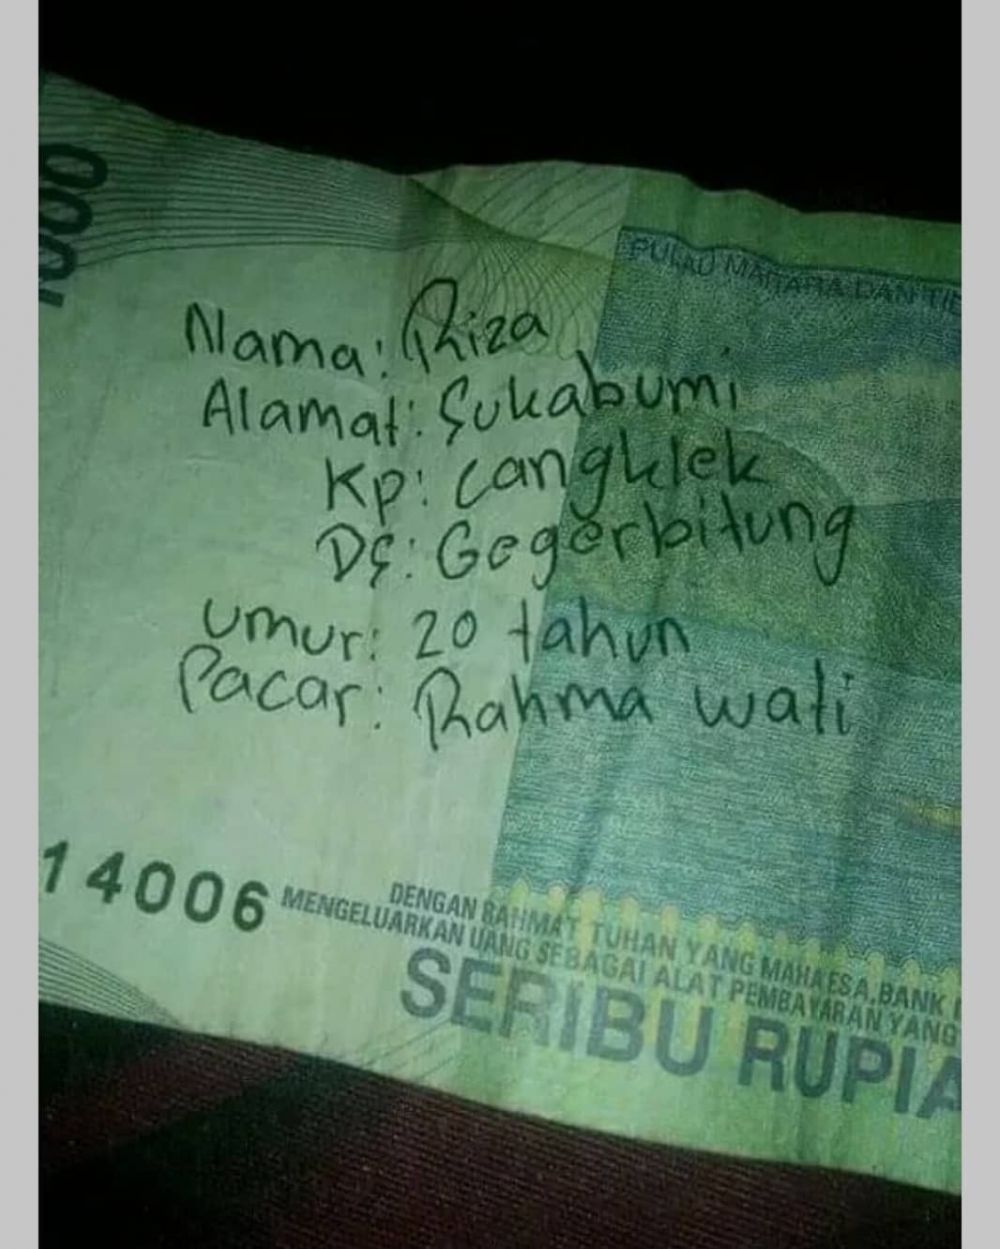 1000
PULAU MAITARA DAN TI
Nama: Riza
Alamat: Sukabumi
Kp: Cangklek
Ds: Gegerbitung
umur: 20 tahun
Pacar: Rahma wati
14006
DENGAN RAHMAT TUHAN YANG MAHA ESA, BANK
MENGELUARKAN UANG SEBAGAI ALAT PEMBAYARAN YANG
SERIBU RUPIA